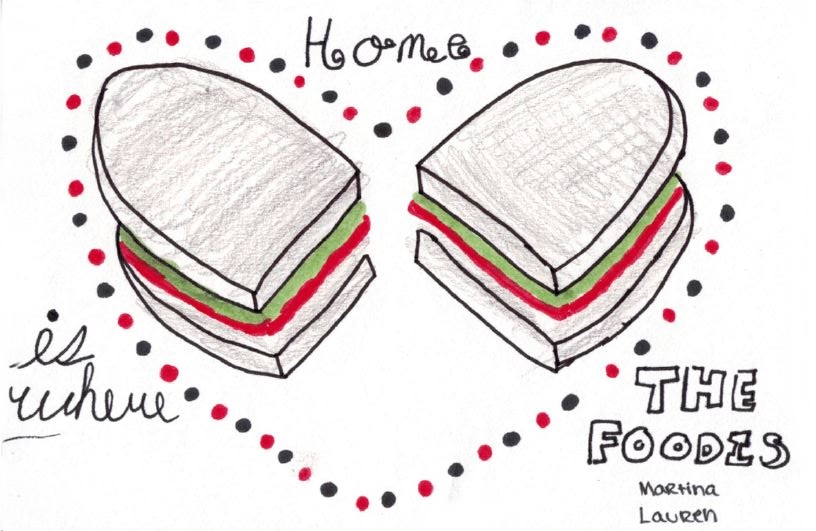 Home
is
where
THE
FOODIS
Martina
Lauren